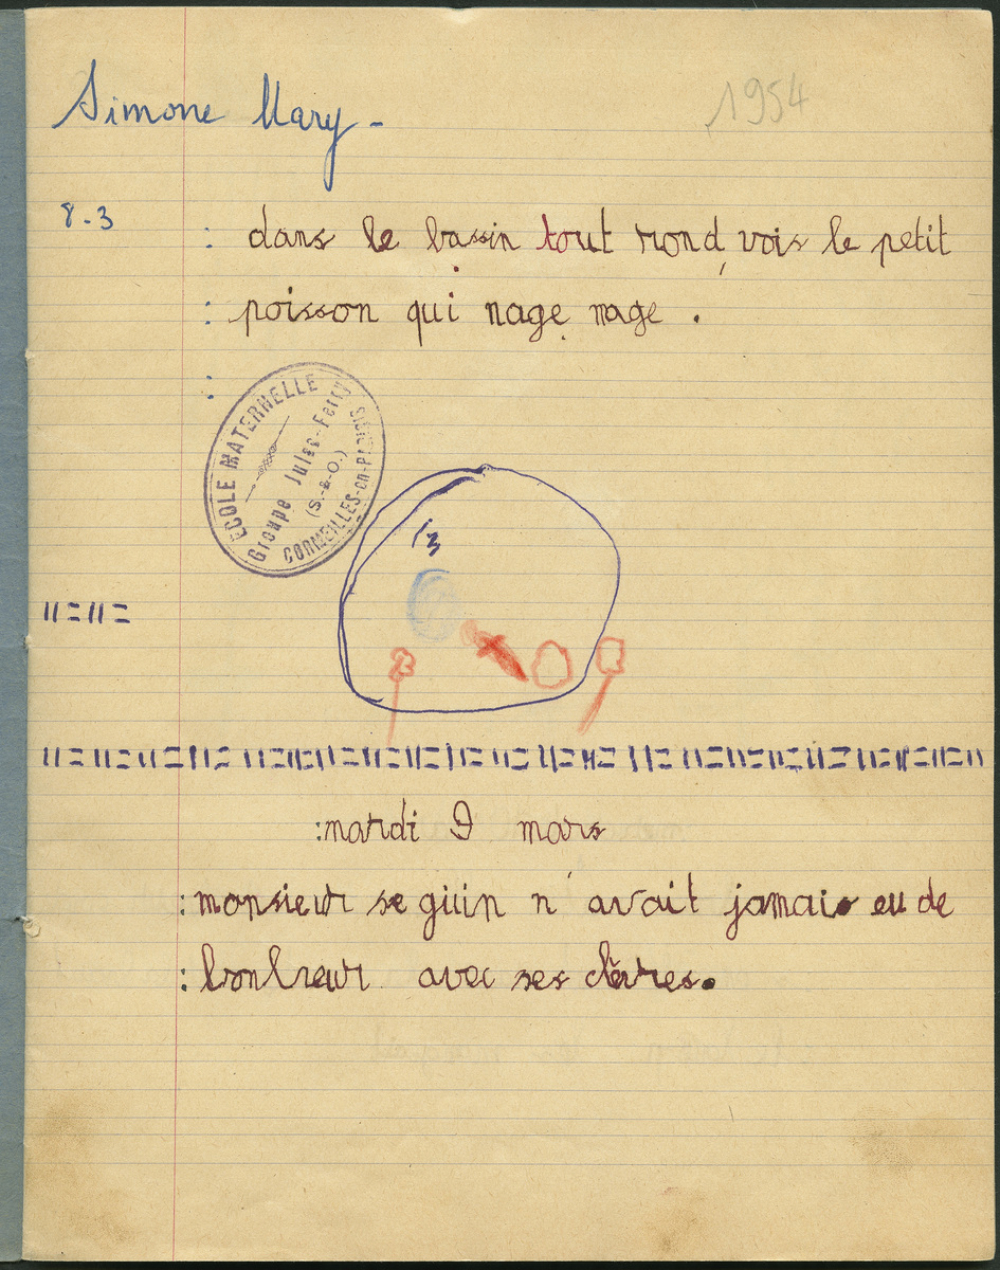 Simone Mary -
1954
8-3
: dans le bassin tout rond, vois le petit
: poisson qui nage nage .
:
ECOLE MATERNELLE
Groupe Jules-Ferry
(S.-&-O.)
CORMEILLES-en-PARISIS
:mardi 9 mars
: monsieur seguin n'avait jamais eu de
: bonheur avec ses chèvres.